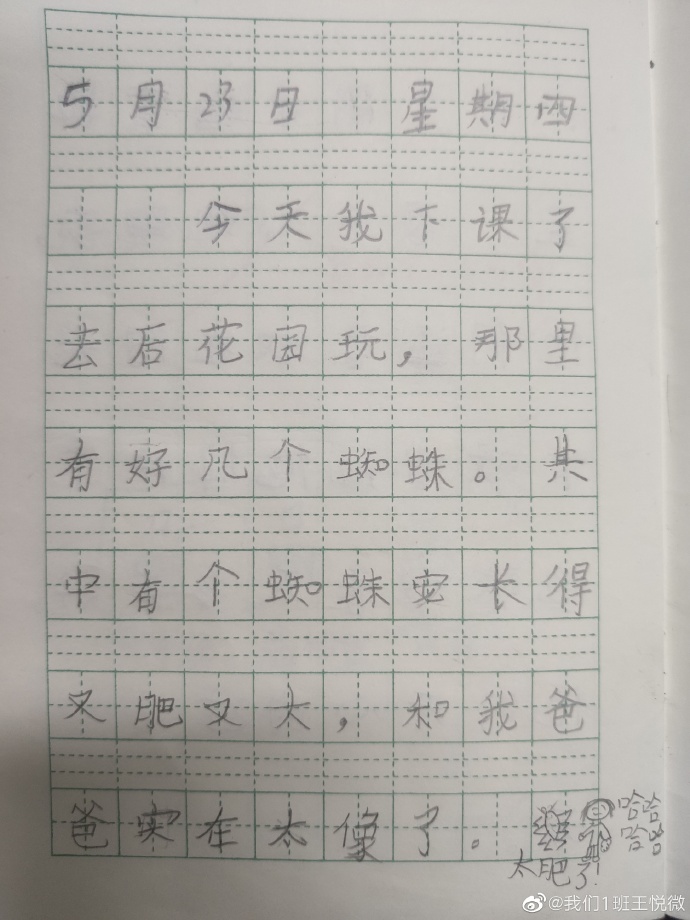 5月23日 星期四
今天我下课了
去后花园玩，那里
有好几个蜘蛛。其
中有个蜘蛛它长得
又肥又大，和我爸
爸实在太像了。
哈哈
哈哈
太肥了!
@我们1班王悦微